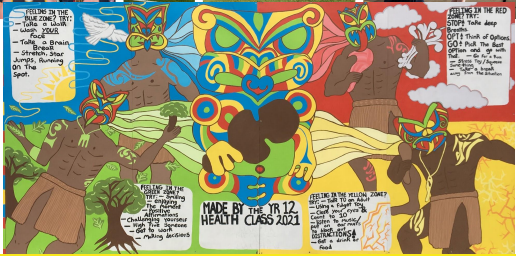 FEELING IN THE
BLUE ZONE? TRY:
- Take a Walk
- Wash YOUR
Face
- Take a Brain
Break
- Stretch, Star
Jumps, Running
On The
Spot.
FEELING IN THE RED
ZONE? TRY:
STOP! Take deep
Breaths.
OPT! Think of Options.
GO! Pick The Best
OPtion and go with
That. - Go for a Run
- Stress Toy/Squeeze
Something
- Take a break
away from the Situation
FEELING IN THE
GREEN ZONE?
TRY: - Smiling
- enjoying
The moment
- Positive
Affirmations
- Challenging yourself
- High Five Someone
- Get to work
- Making decisions
MADE BY THE YR 12
HEALTH CLASS 2021
FEELING IN THE YELLOW ZONE?
TRY: - Talk TO an Adult
- Using a Fidget Toy
- Close your eyes &
Count to 10
- Listen to music/
put on ear muffs
to block out
DISTRACTIONS
- Get a drink or
Food